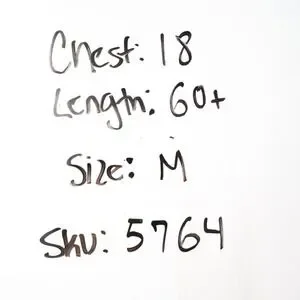 Chest: 18
Length: 60+
Size: M
SKU: 5764